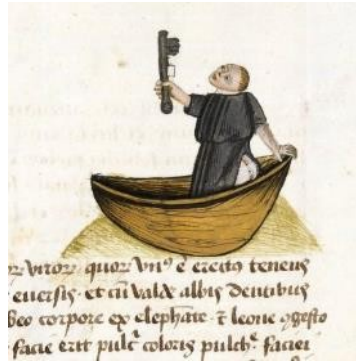 viroꝝ quoꝝ vnꝰ ē erectꝰ tenens
euersis et cū valde albis dentibus
corpore ex elephāte ⁊ leone
facie erit pulc̄ coloris pulch̄ faciei